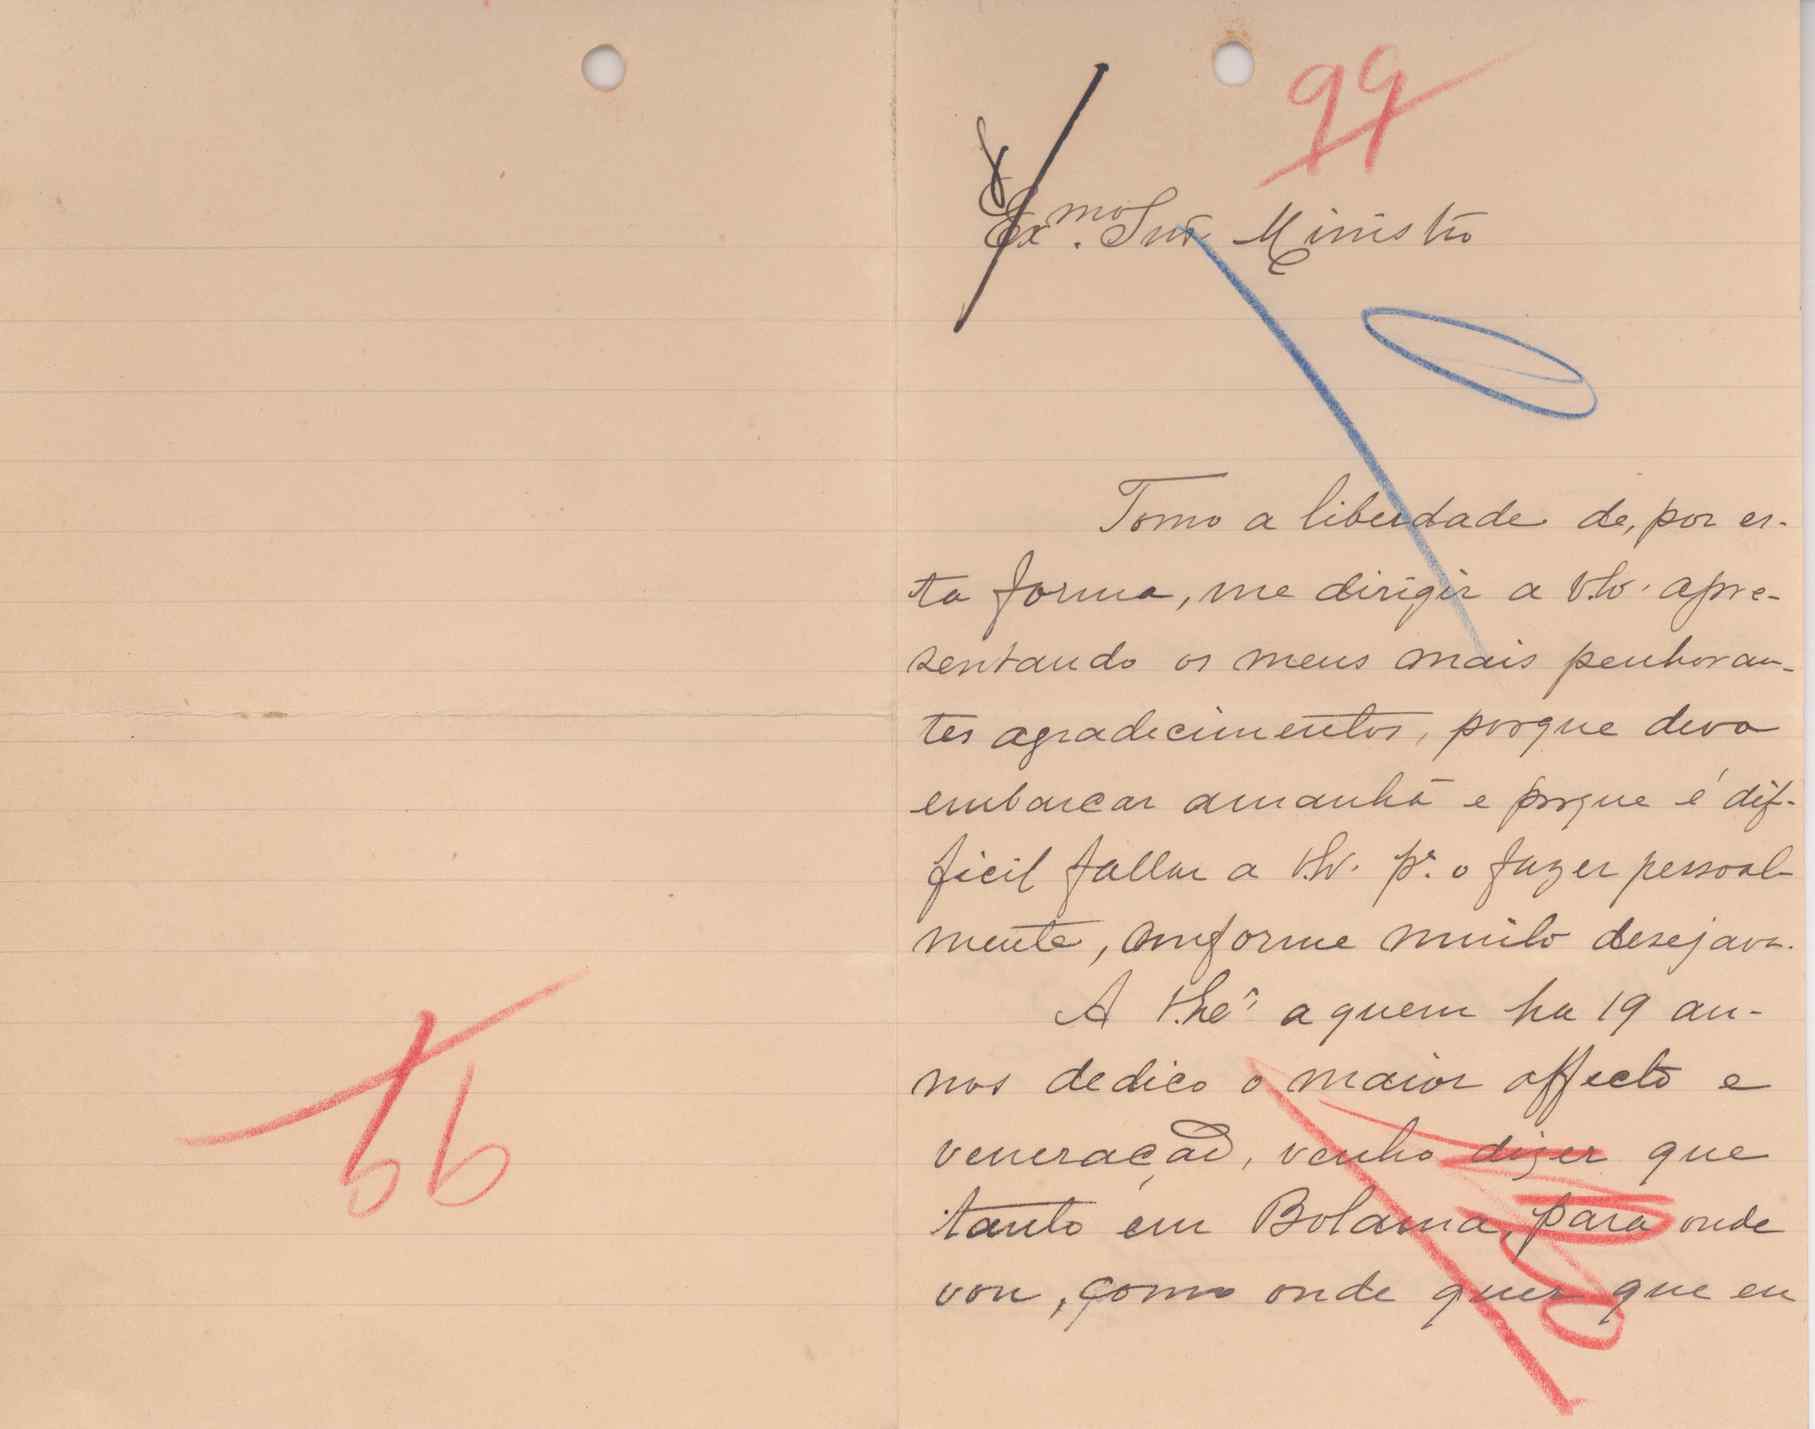 99
Ex.mo Snr Ministro
Tomo a liberdade de, por es-
ta forma, me dirigir a V. apre-
sentando os meus mais penhoran-
tes agradecimentos, porque devo
embarcar amanhã e porque é dif-
ficil fallar a pª. o fazer pessoal-
mente, conforme muito desejava.
A a quem ha 19 an-
nos dedico o maior affecto e
veneração, venho dizer que
tanto em Bolama, para onde
vou, como onde quer que eu